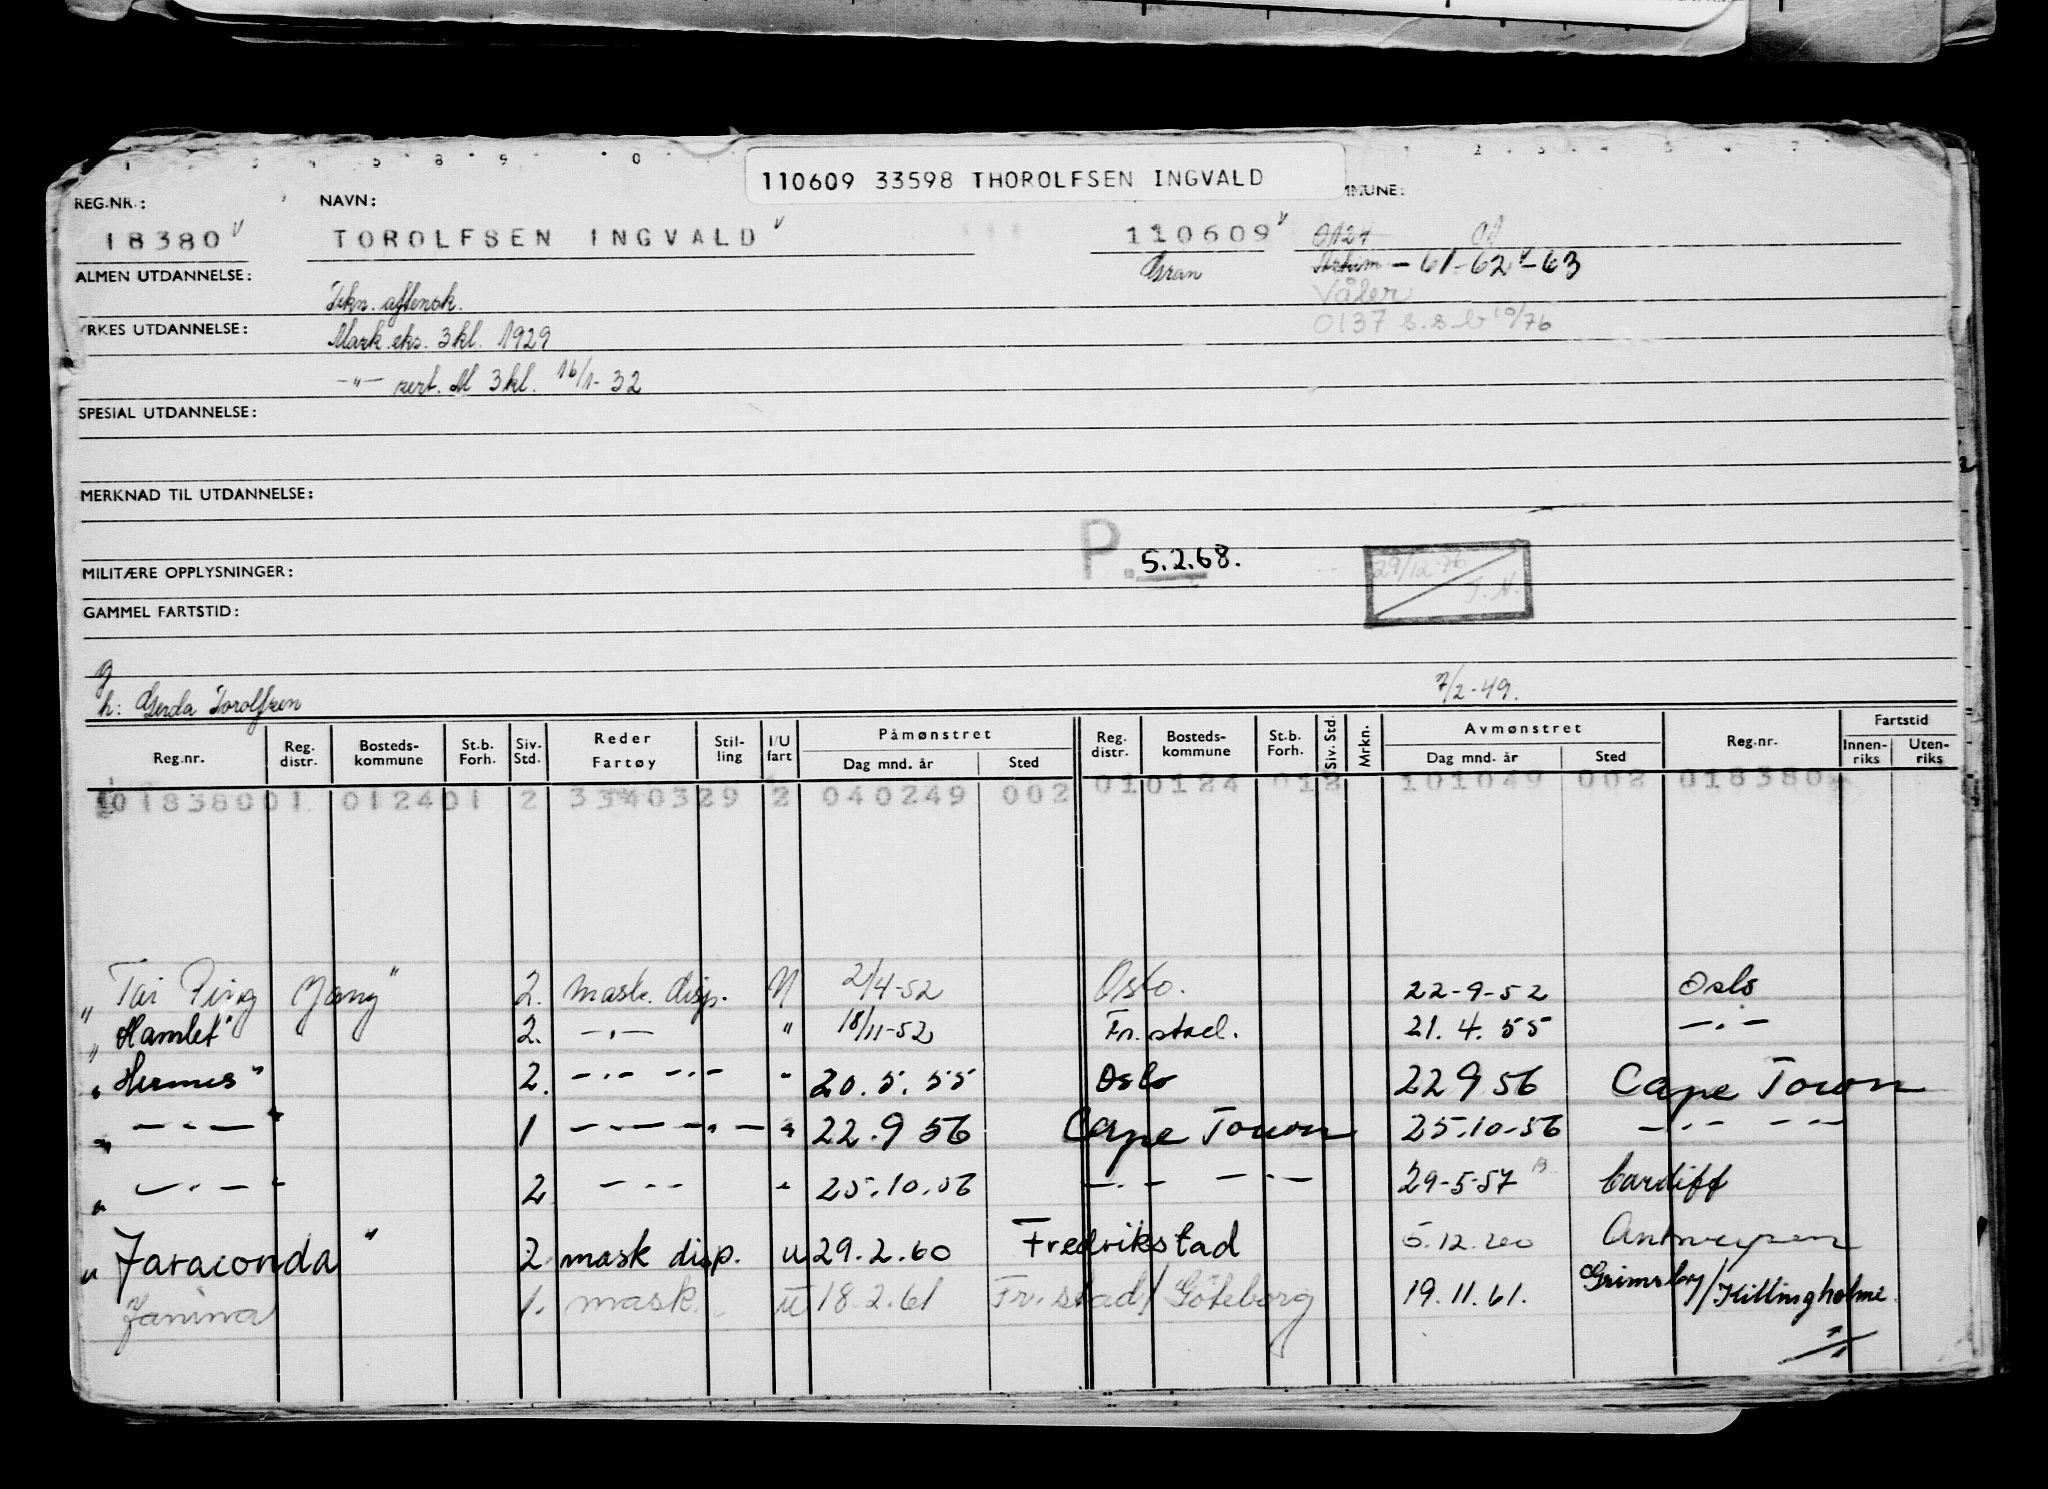 110609 33598 THOROLFSEN INGVALD
REG.NR.: NAVN: MMUNE:
18380 TOROLFSEN INGVALD 110609 0124
Gran Askim - 61 - 62 - 63
ALMEN UTDANNELSE: Tekn. aftensk. Våler
YRKES UTDANNELSE: Mask. eks. 3 kl. 1929 0137 s.s.b 10/76
-"- sert. M 3 kl. 16/1-32
SPESIAL UTDANNELSE:
MERKNAD TIL UTDANNELSE:
P. 5.2.68.
MILITÆRE OPPLYSNINGER: 29/12-76 T.N.
GAMMEL FARTSTID:
g
h: Gerda Torolfsen 7/2-49.
Reg.nr. Reg. distr. Bosteds-kommune St.b. Forh. Siv. Std. Reder Fartøy Stil-ling I/U fart Påmønstret Dag mnd. år Sted Reg. distr. Bosteds-kommune St.b. Forh. Siv. Std. Mrkn. Avmønstret Dag mnd. år Sted Reg.nr. Fartstid Innen-riks Uten-riks
01838001 012401 2 3340329 2 040249 002 010124 012 101049 002 018380
" Tai Ping Yang" 2. mask. disp. U 2/4-52 Oslo. 22-9-52 Oslo
" Hamlet" 2. -"- " 18/11-52 Fr.stad. 21.4.55 -"-
" Hermes" 2. -"- -"- " 20.5.55 Oslo 22 9 56 Cape Town
" -"- 1 -"- -"- " 22.9 56 Cape Town 25.10-56 -"- -"-
" -"- 2 -"- " 25.10.56 -"- -"- 29-5-57 Cardiff
" Jaraconda" 2 mask disp. u 29.2.60 Fredrikstad 5.12.60 Antwerpen
Janina 1. mask. U 18.2.61 Fr.stad/Göteborg 19.11.61. Grimsby/Killingholme